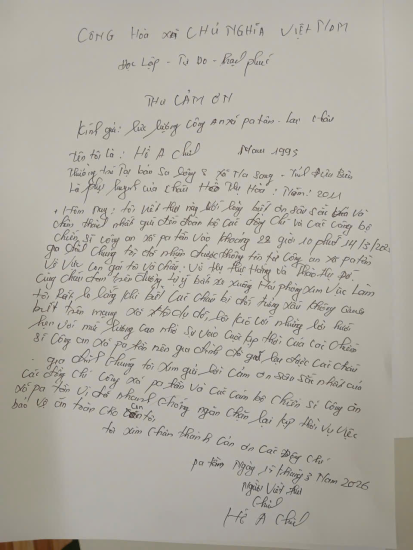 CÔNG HÒA XÃ CHỦ NGHĨA VIỆT NAM
Độc Lập - Tự Do - Hạnh phúc
THƯ CẢM ƠN
Kính gửi: lực lượng Công An xã pa tần - Lai Châu
Tên tôi là: Hồ A Chỉnh năm 1993
Thường trú tại bản 5 xã Na Song - Tỉnh Điện Biên
Là phụ huynh của cháu Hờ Thị Hoa: Năm: 2011
Hôm nay: tôi viết thư này với lòng biết ơn sâu sắc và
chân thành nhất gửi đến toàn bộ các đồng chí và cán bộ
chiến sĩ công an xã pa tần vào khoảng 22 giờ 10 phút 14/3/202
gia đình chúng tôi nhận được thông tin từ Công an xã pa tần
Về Vụ con gái tôi và cháu: Vừ Thị Thu Hường và
cùng cháu đang trên đường tự ý bắt xe xuống Hải phòng Xin Việc Làm
tôi rất lo lắng khi biết các cháu bị dụ dỗ
biết trên mạng xã hội dụ dỗ, lôi kéo với những lời hứa
hẹn với mức lương cao nhờ sự vào cuộc kịp thời của các chiến
sĩ Công an xã pa tần nên gia đình đã gặp lại được các cháu
gia đình chúng tôi xin gửi lời cảm ơn sâu sắc nhất của
các đồng chí Công xã pa tần và các cán bộ chiến sĩ Công an
xã pa tần vì đã nhanh chóng ngăn chặn lại kịp thời vụ việc
bảo vệ an toàn cho con tôi
tôi xin chân thành cảm ơn các đồng chí
pa tần Ngày 15 tháng 3 năm 2026
Người viết thư
Hồ A